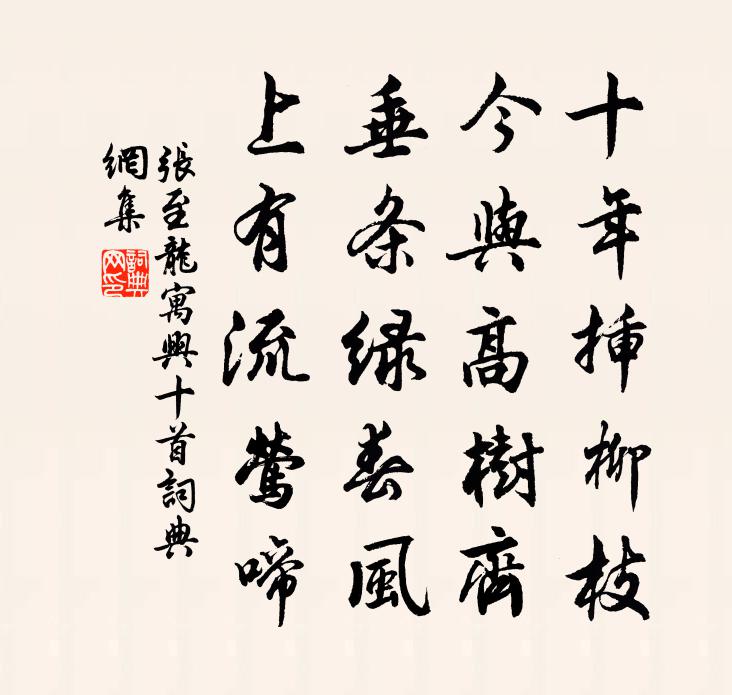 十年插柳枝
今與高樹齊
垂条绿春風
上有流鶯啼
張至龍寓興十首詞典
網集
詞典
网印